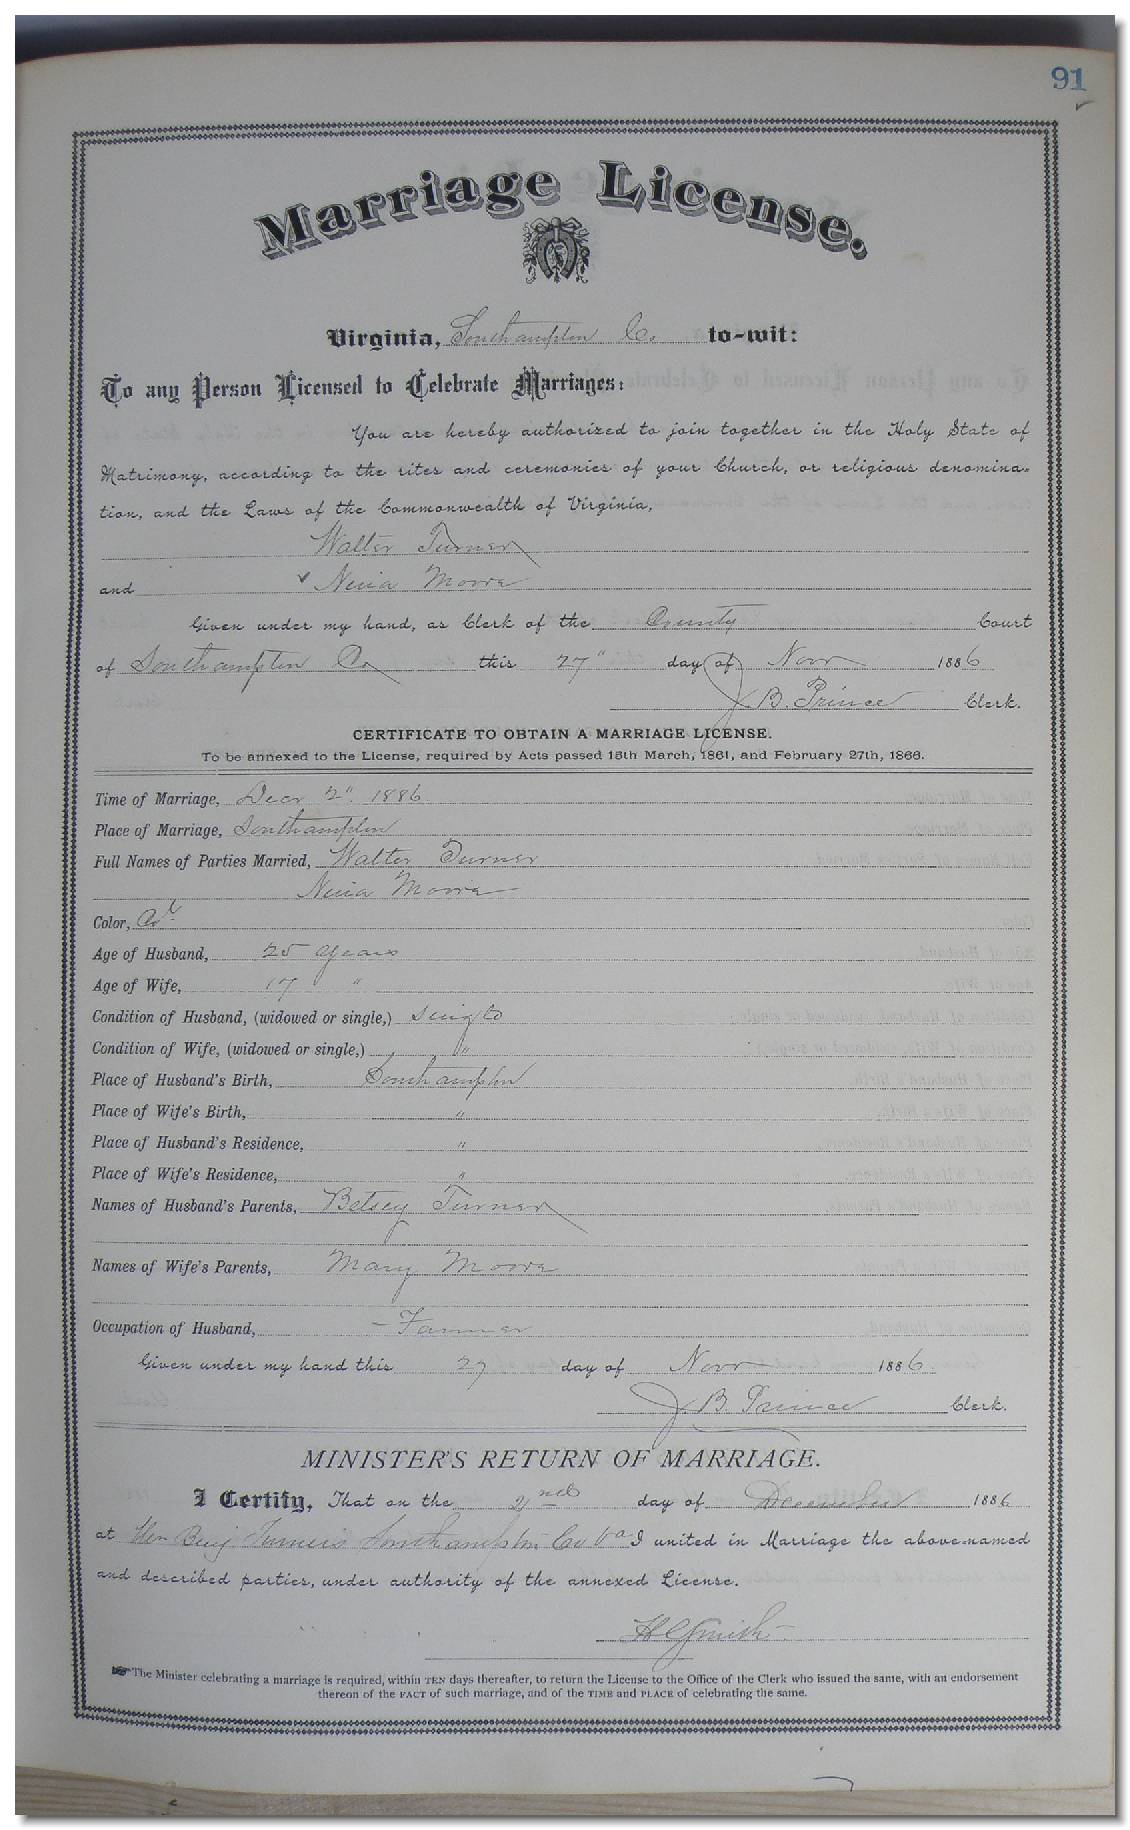 91
Marriage License.
Virginia, Southampton Co. to-wit:
To any Person Licensed to Celebrate Marriages:
You are hereby authorized to join together in the Holy State of
Matrimony, according to the rites and ceremonies of your Church, or religious denomina-
tion, and the Laws of the Commonwealth of Virginia,
Walter Turner
and Moore
Given under my hand, as Clerk of the County Court
of Southampton Co this 27" day of Novr 1886
J. B. Prince Clerk.
CERTIFICATE TO OBTAIN A MARRIAGE LICENSE.
To be annexed to the License, required by Acts passed 15th March, 1861, and February 27th, 1866.
Time of Marriage, Decr 2" 1886
Place of Marriage, Southampton
Full Names of Parties Married, Walter Turner
Moore
Color, Cold.
Age of Husband, 25 years
Age of Wife, 17 "
Condition of Husband, (widowed or single,) Single
Condition of Wife, (widowed or single,) "
Place of Husband's Birth, Southampton
Place of Wife's Birth, "
Place of Husband's Residence, "
Place of Wife's Residence, "
Names of Husband's Parents, Betsey Turner
Names of Wife's Parents, Mary Moore
Occupation of Husband, Farmer
Given under my hand this 27 day of Novr 1886.
J. B. Prince Clerk.
MINISTER'S RETURN OF MARRIAGE.
I Certify, That on the 2nd day of December 1886
at Benj Turner's Southampton Co Va I united in Marriage the above-named
and described parties, under authority of the annexed License.
Smith
The Minister celebrating a marriage is required, within TEN days thereafter, to return the License to the Office of the Clerk who issued the same, with an endorsement
thereon of the FACT of such marriage, and of the TIME and PLACE of celebrating the same.